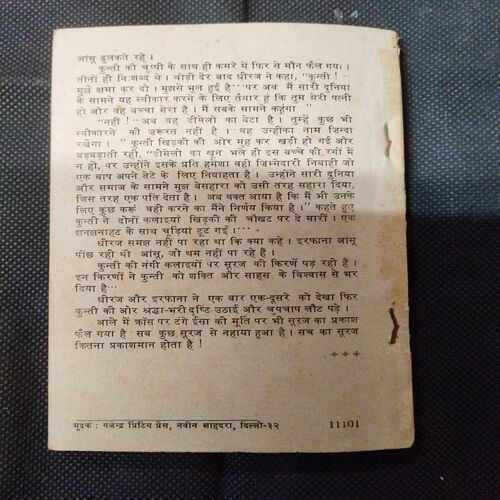 आंसू ढुलकते रहे ।
कुन्ती की चुप्पी के साथ ही कमरे में फिर से मौन फैल गया ।
तीनों ही निःशब्द थे । थोड़ी देर बाद धीरज ने कहा, "कुन्ती !
मुझे क्षमा कर दो । मुझसे भूल हुई है ··· पर अब मैं सारी दुनिया
के सामने यह स्वीकार करने के लिए तैयार हूं कि तुम मेरी पत्नी
हो और वह बच्चा मेरा है । मैं सबके सामने कहूंगा ···"
"नहीं ! ··· अब वह डीमेलो का बेटा है । तुम्हें कुछ भी
स्वीकारने की जरूरत नहीं है । वह उन्हींका नाम जिन्दा
रखेगा । " कुन्ती खिड़की की ओर मुंह कर खड़ी हो गई और
बड़बड़ाती रही, "डीमेलो का खून भले ही इस बच्चे की रगों में
न हो, पर उन्होंने इसके प्रति हमेशा वही जिम्मेदारी निबाही जो
एक बाप अपने बेटे के लिए निबाहता है । उन्होंने सारी दुनिया
और समाज के सामने मुझ बेसहारा को उसी तरह सहारा दिया,
जिस तरह एक पति देता है । अब वक्त आया है कि मैं भी उनके
लिए कुछ करूं वही करने का मैंने निर्णय किया है ।" कहते हुए
कुन्ती ने दोनों कलाइयां खिड़की की चौखट पर दे मारीं । एक
झनझनाहट के साथ चूड़ियां टूट गईं ।···
धीरज समझ नहीं पा रहा था कि क्या कहे । इरफाना आंसू
पोंछ रही थी आंसू, जो थम नहीं पा रहे हैं ।
कुन्ती की नंगी कलाइयों पर सूरज की किरणें पड़ रही हैं ।
इन किरणों ने कुन्ती को शक्ति और साहस के विश्वास से भर
दिया है ···
धीरज और इरफाना ने एक बार एक-दूसरे को देखा फिर
कुन्ती की ओर श्रद्धा-भरी दृष्टि उठाई और चुपचाप लौट पड़े ।
आले में क्रॉस पर टंगे ईसा की मूर्ति पर भी सूरज का प्रकाश
फैल गया है सब कुछ सूरज से नहाया हुआ है । सच का सूरज
कितना प्रकाशमान होता है !
+ + +
मुद्रक : गजेन्द्र प्रिंटिंग प्रेस, नवीन शाहदरा, दिल्ली-३२ 11101